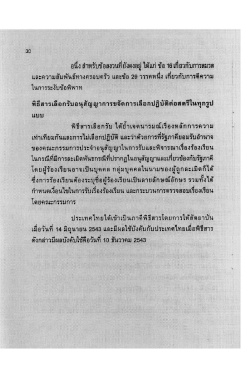 30
อนึ่ง สำหรับข้อสงวนที่ยังคงอยู่ ได้แก่ ข้อ 16 เกี่ยวกับการสมรส
และความสัมพันธ์ทางครอบครัว และข้อ 29 วรรคหนึ่ง เกี่ยวกับการตีความ
ในการระงับข้อพิพาท
พิธีสารเลือกรับอนุสัญญาการขจัดการเลือกปฏิบัติต่อสตรีในทุกรูป
แบบ
พิธีสารเลือกรับ ได้ย้ำเจตนารมณ์เรื่องหลักการความ
เท่าเทียมกันและการไม่เลือกปฏิบัติ และว่าด้วยการที่รัฐภาคียอมรับอำนาจ
ของคณะกรรมการประจำอนุสัญญาในการรับและพิจารณาเรื่องร้องเรียน
ในกรณีที่มีการละเมิดพันธกรณีที่ปรากฏในอนุสัญญาและเกี่ยวข้องกับรัฐภาคี
โดยผู้ร้องเรียนอาจเป็นบุคคล กลุ่มบุคคลในนามของผู้ถูกละเมิดก็ได้
ซึ่งการร้องเรียนต้องระบุชื่อผู้ร้องเรียนเป็นลายลักษณ์อักษร รวมทั้งได้
กำหนดเงื่อนไขในการรับเรื่องร้องเรียน และกระบวนการตรวจสอบเรื่องร้องเรียน
โดยคณะกรรมการ
ประเทศไทยได้เข้าเป็นภาคีพิธีสารโดยการให้สัตยาบัน
เมื่อวันที่ 14 มิถุนายน 2543 และมีผลใช้บังคับกับประเทศไทยเมื่อพิธีสาร
ดังกล่าวมีผลบังคับใช้คือวันที่ ธันวาคม 2543